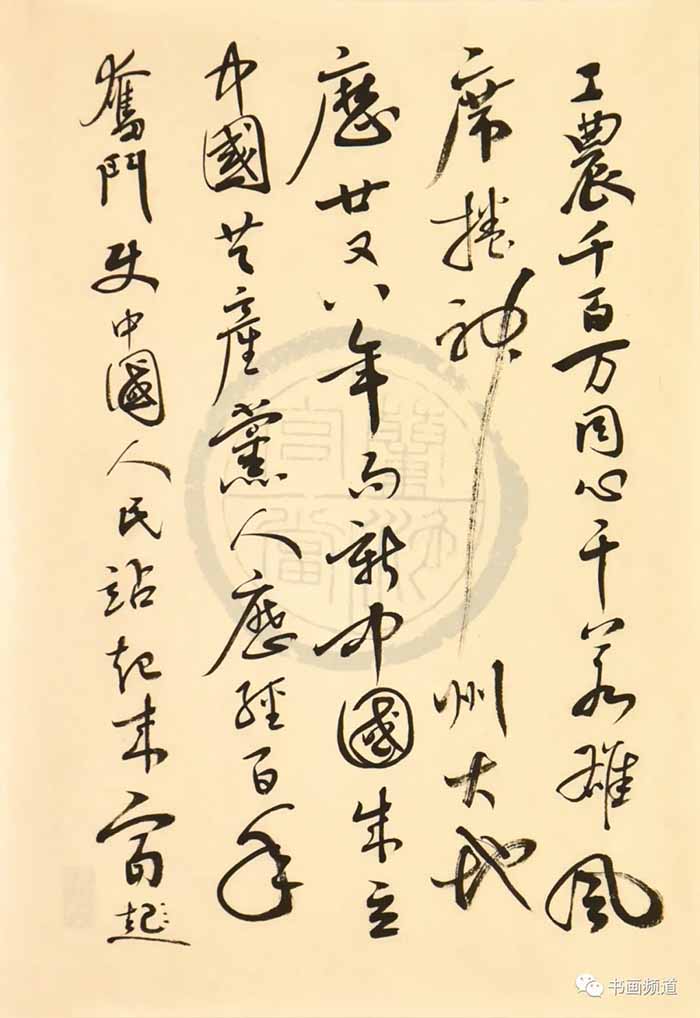 工農千百万同心干英雄風
席捲神州大地
歷廿又八年而新中國成立
中國共產黨人歷經百年
奮鬥使中國人民站起来富起
书画频道